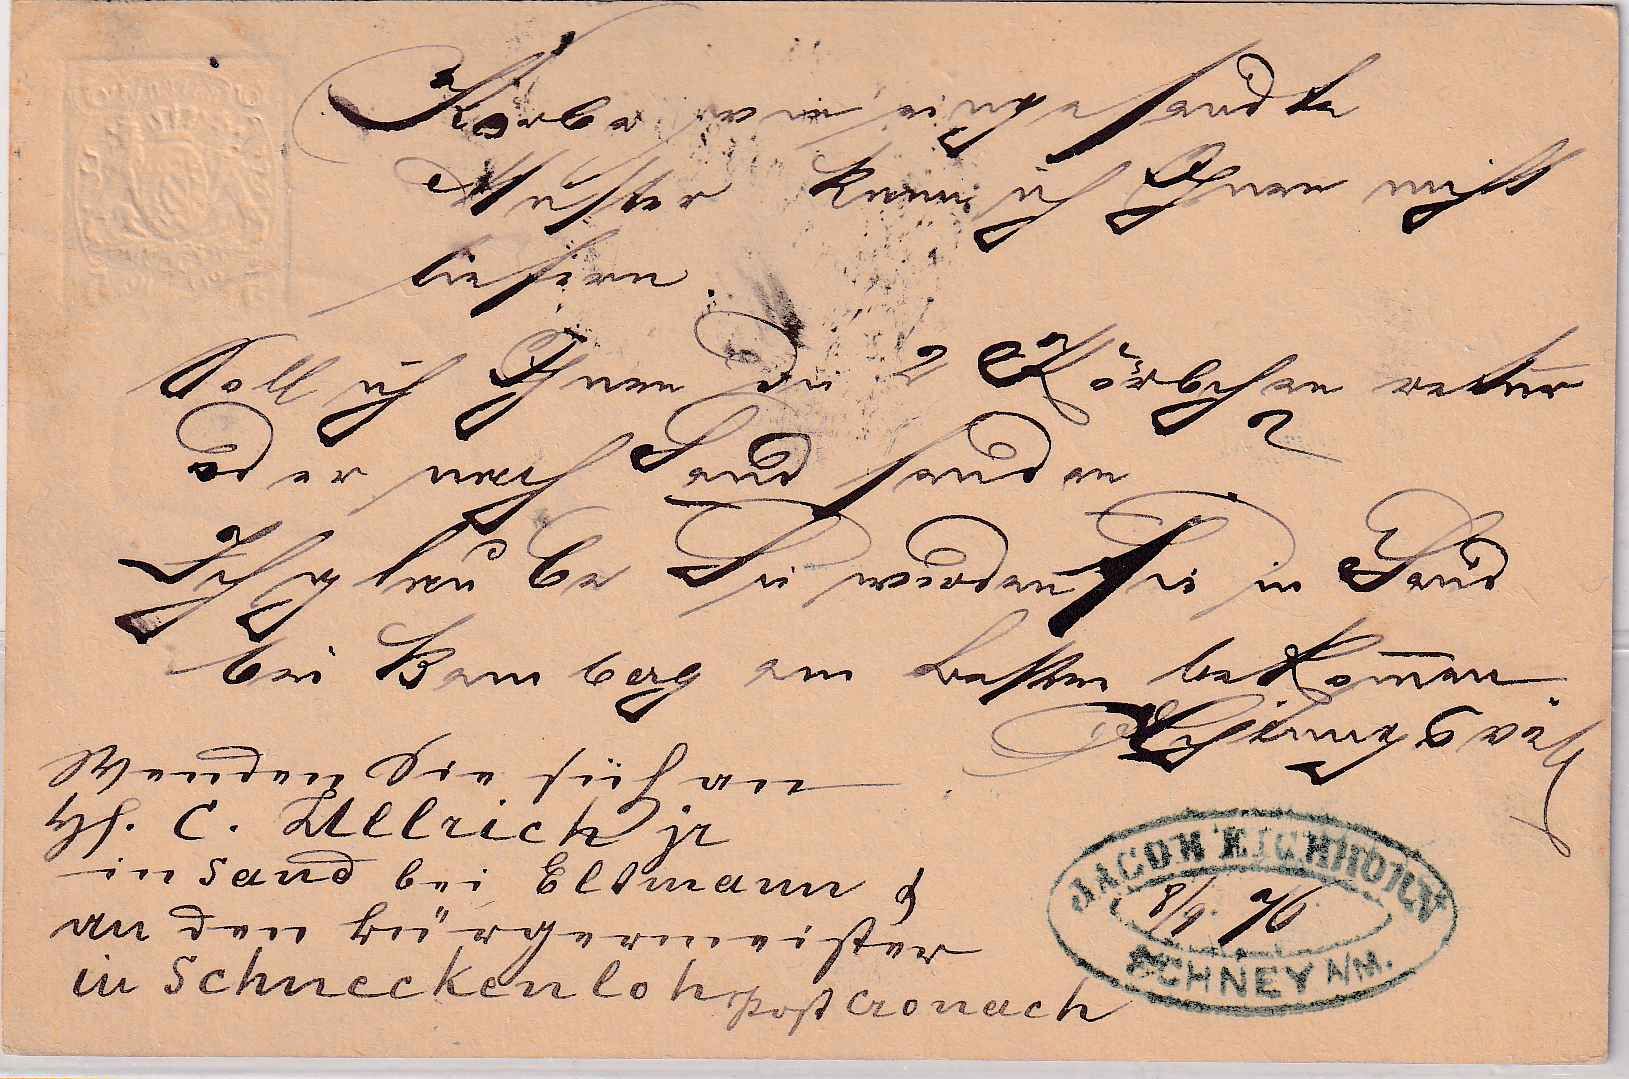 Körbe wie eingesandte
Muster kann ich Ihnen nicht
liefern.
Soll ich Ihnen die 2 Körbchen retour
oder nach Sand senden?
Ich glaube Sie werden Sie in Sand
bei Bamberg am besten bekommen
Achtungsvoll
Wenden Sie sich an
H. C. Ullrich jr
in Sand bei Eltmann &
an den Bürgermeister
in Schneckenloh Post Cronach
JACOB EICHHORN
8/9. 76
SCHNEY A/M.